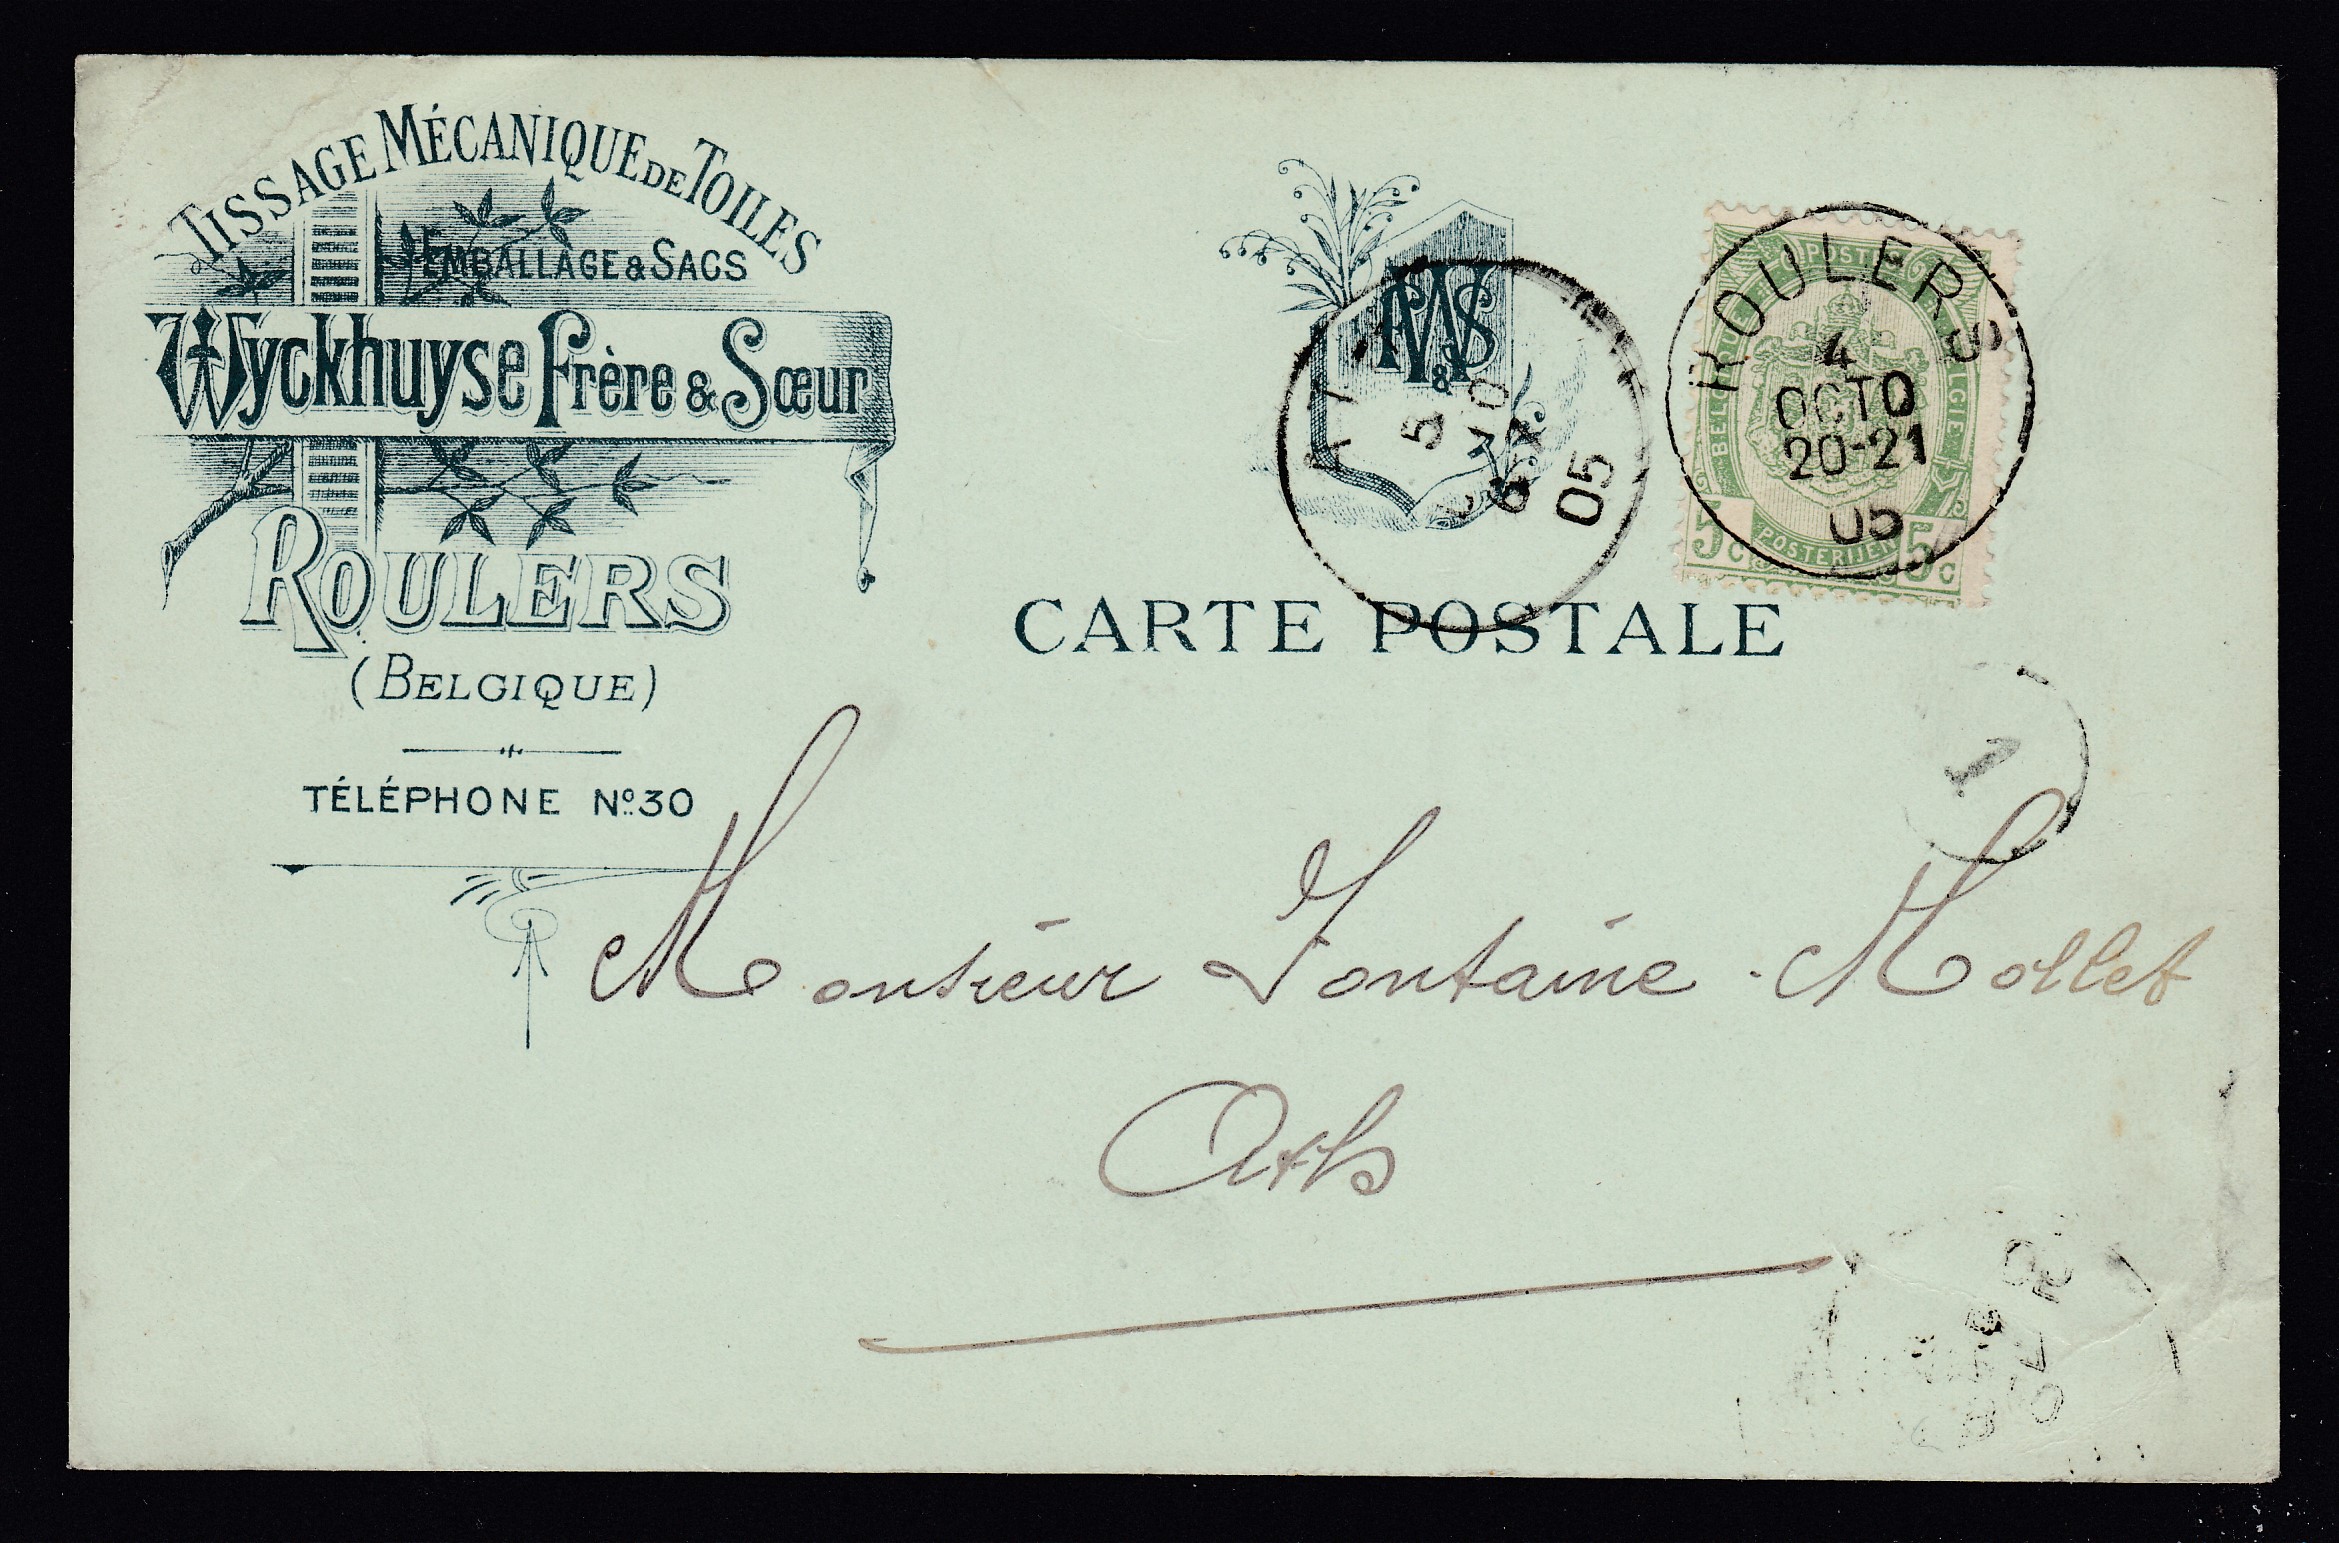 TISSAGE MÉCANIQUE DE TOILES
EMBALLAGE & SACS
Wyckhuyse Frère & Sœur
ROULERS
(BELGIQUE)
TÉLÉPHONE Nº 30
POSTES
BELGIQUE BELGIE
5c POSTERIJEN 5c
ROULERS
4
OCTO
20-21
05
5
6-7
05
CARTE POSTALE
1
Monsieur Fontaine-Mollet
Ath